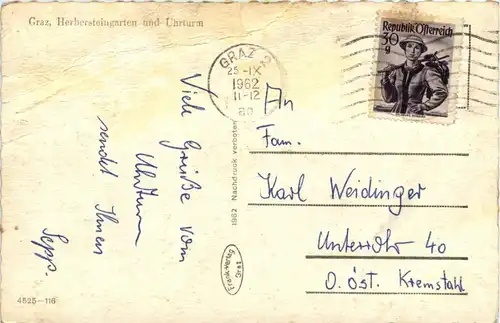 Graz, Herbersteingarten und Uhrturm
Republik Österreich
30
g
GRAZ 2
25.-IX
1962
11-12
8a
Viele Grüße vom
Uhrturm
sendet Ihnen
Sepp.
1962 Nachdruck verboten
Graz
An
Fam.
Karl Weidinger
Unterrohr 40
O. öst. Kremstahl
4525-116